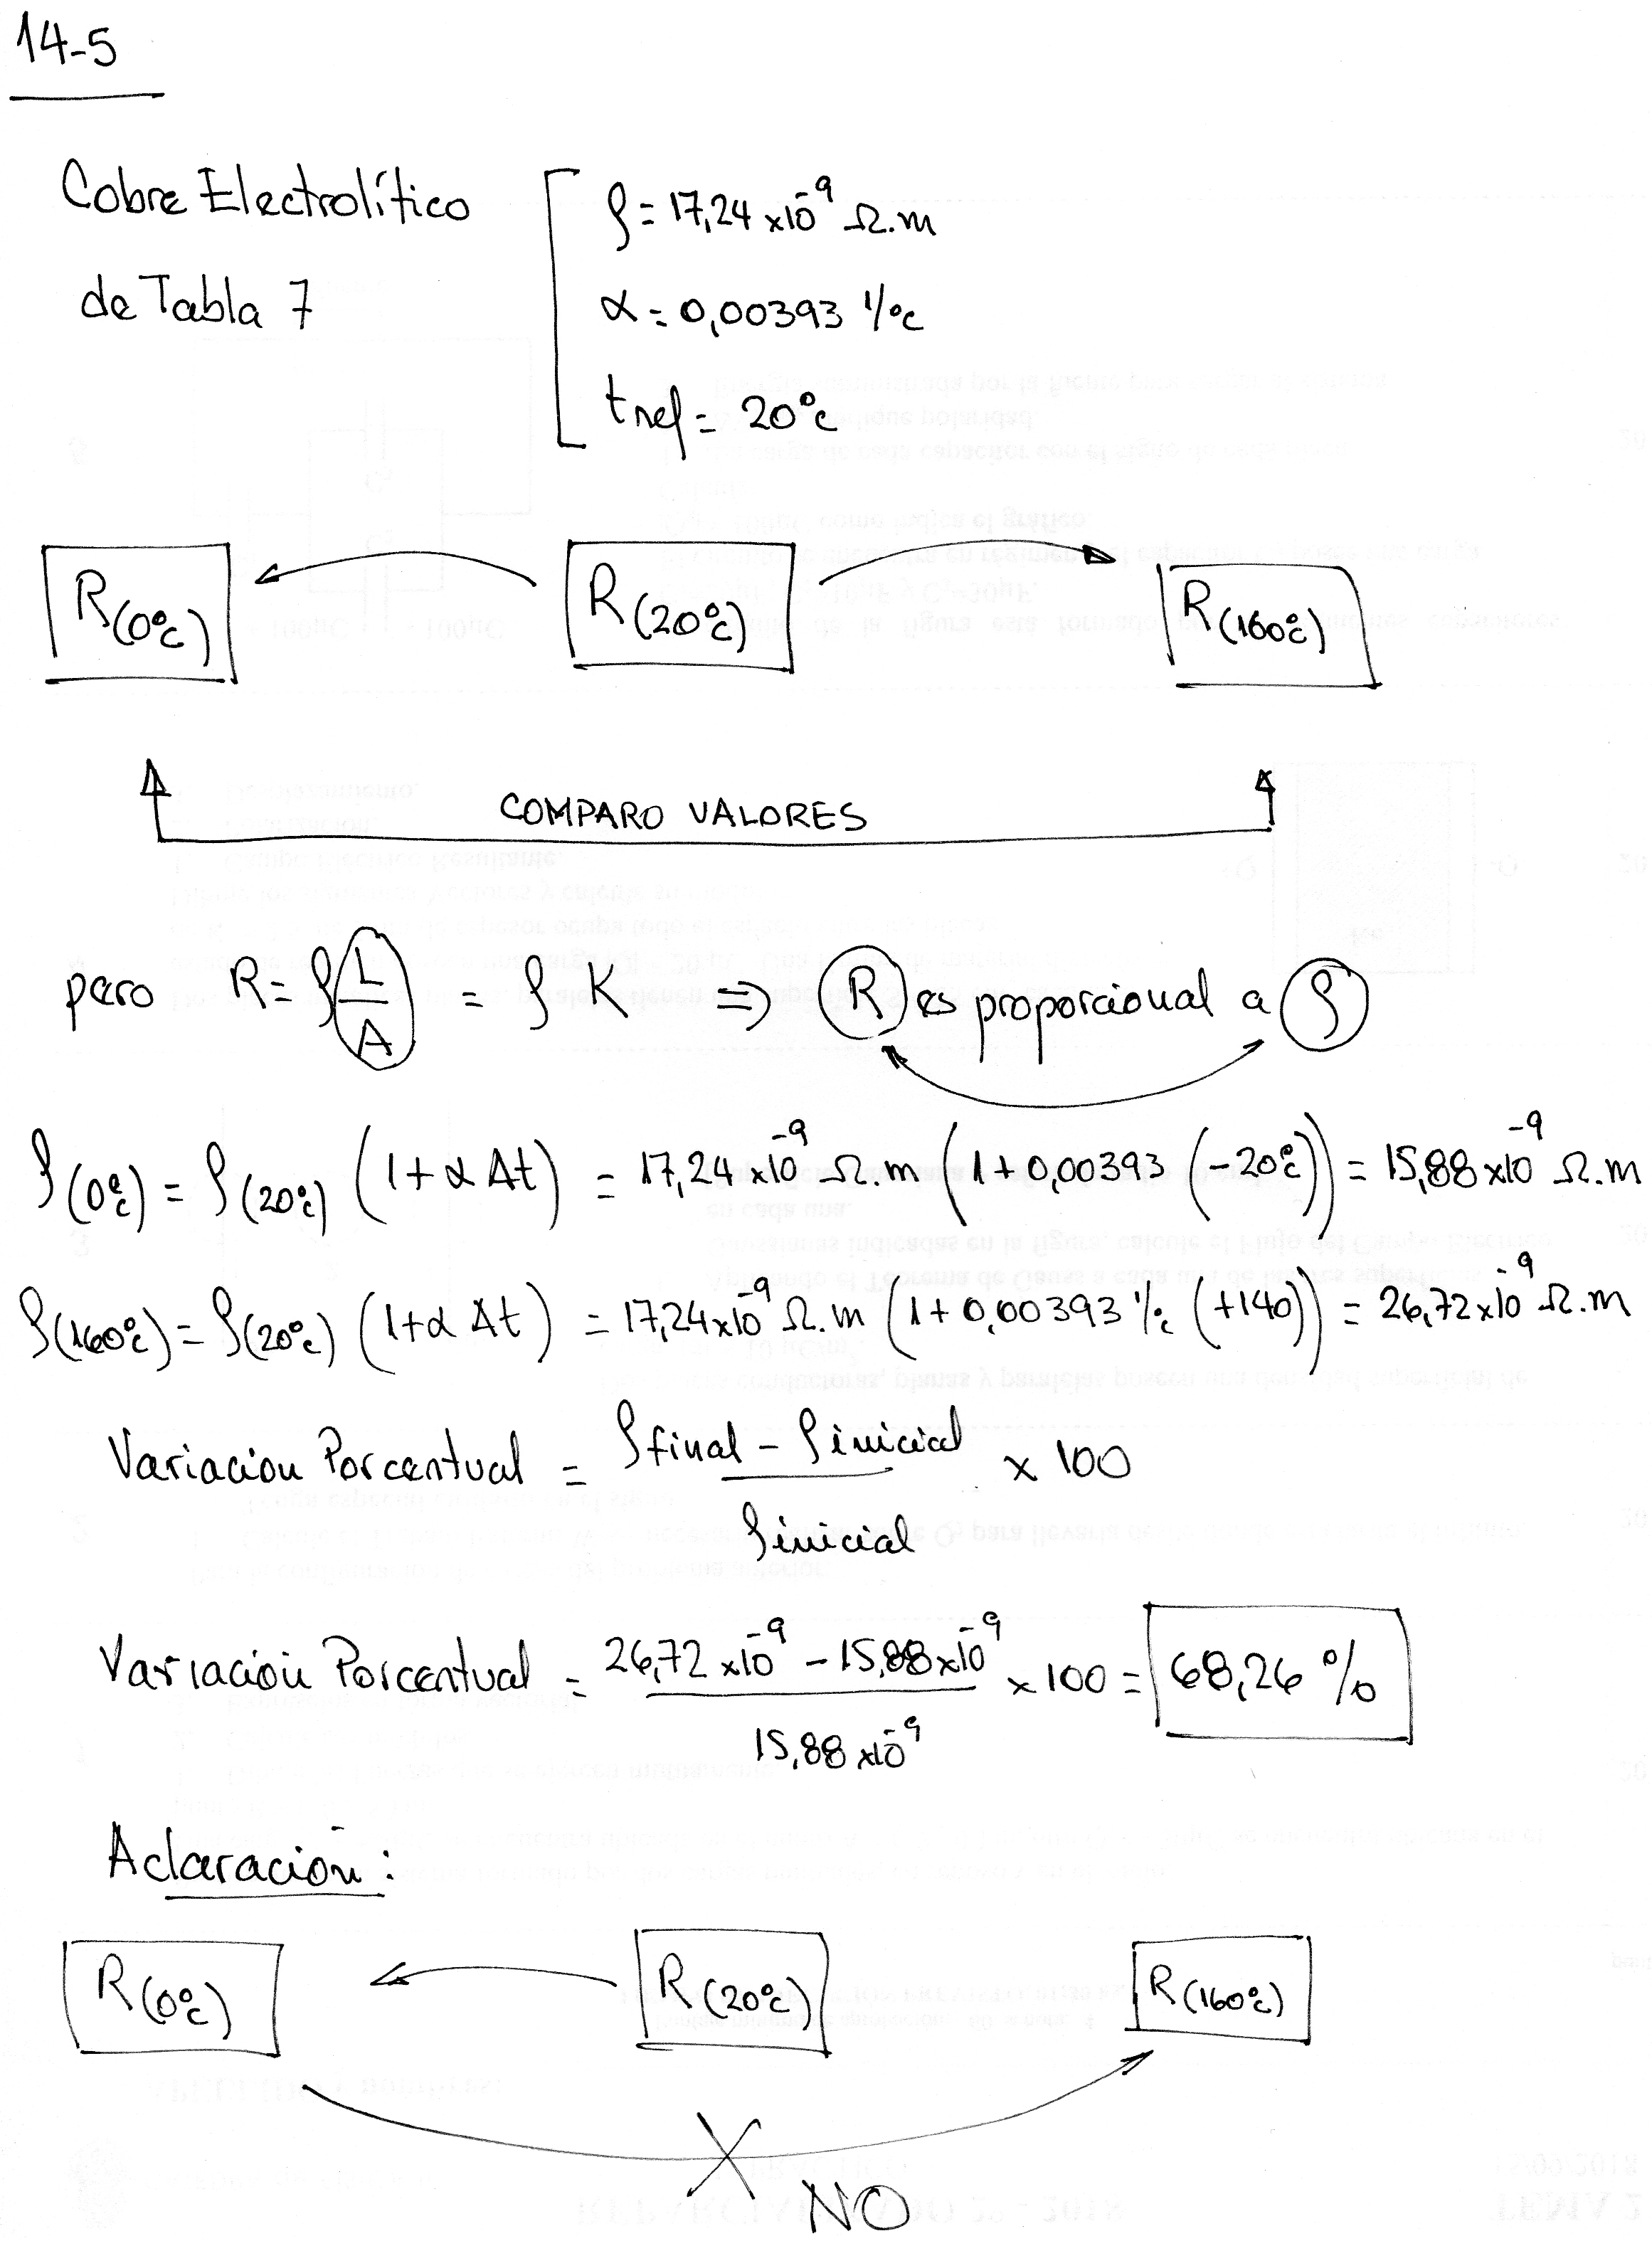 14-5
Cobre Electrolítico
de Tabla 7
ρ = 17,24 x10⁻⁹ Ω.m
α = 0,00393 1/°C
tref = 20°C
R(0°C) R(20°C) R(160°C)
COMPARO VALORES
pero R = ρ L/A = ρ K ⇒ R es proporcional a ρ
ρ(0°C) = ρ(20°C) (1 + α Δt) = 17,24 x10⁻⁹ Ω.m (1 + 0,00393 (-20°C)) = 15,88 x10⁻⁹ Ω.m
ρ(160°C) = ρ(20°C) (1 + α Δt) = 17,24 x10⁻⁹ Ω.m (1 + 0,00393 1/°C (+140)) = 26,72 x10⁻⁹ Ω.m
Variacion Porcentual = ρfinal - ρinicial / ρinicial x 100
Variación Porcentual = 26,72 x10⁻⁹ - 15,88 x10⁻⁹ / 15,88 x10⁻⁹ x 100 = 68,26 %
Aclaración:
R(0°C) R(20°C) R(160°C)
NO